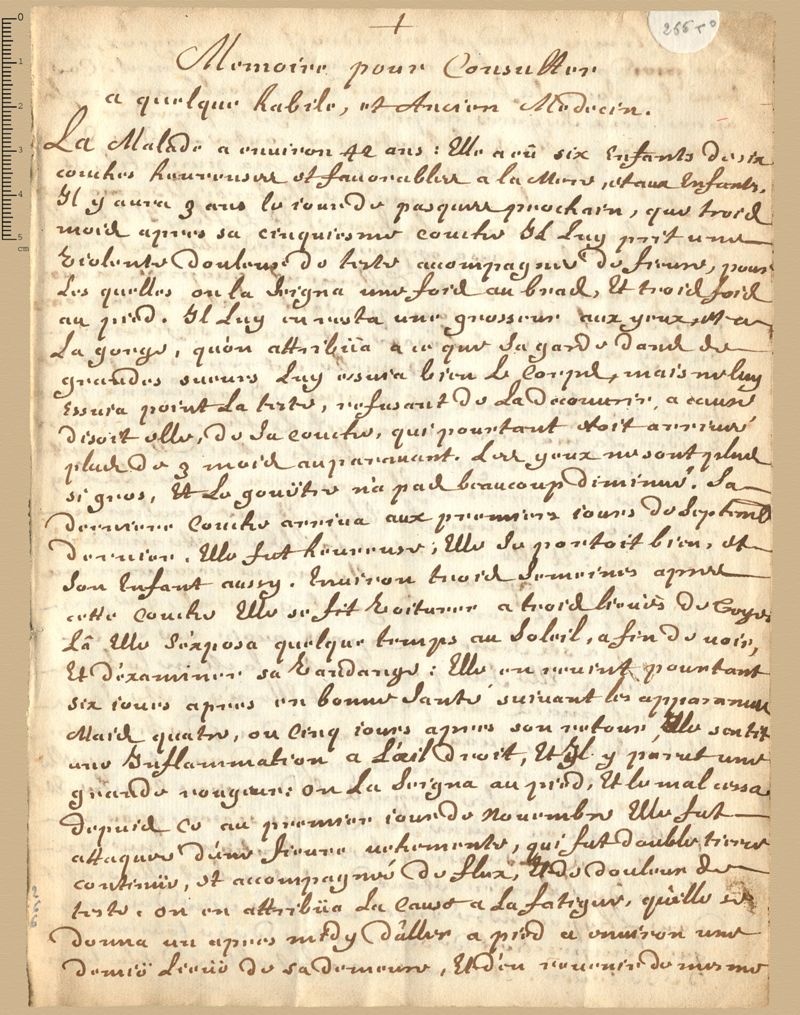 266 r°
Memoire pour Consulter
a quelque habile, et Ancien Medecin.
La Malade a environ 42 ans : Elle a eû six Enfants de six
couches heureuses et favorables a la Mere, et aux Enfants.
Il y aura 3 ans le iour de pasques prochain, que trois
mois apres sa cinquiesme couche Il Luy prit une
violente douleur de teste accompagnée de fieure, pour
Les quelles on la seigna une fois au bras, Et trois fois
au pied. Il Luy en resta une grosseur aux yeux, et a
La gorge, qu'on attribüa a ce que sa garde dans de
grandes sueurs Luy essuia bien Le Corps, mais ne luy
Essuia point La teste, refusant de La decouurir, a cause
disoit elle, de sa couche, qui pourtant etoit arriueé
plus de 3 mois auparauant. Les yeux ne sont plus
si gros, Et Le gouëtre n'a pas beaucoup diminué. Sa
derniere Couche arriua aux premiers iours de Septemb
dernier. Elle fut heureuse ; Elle se portoit bien, et
son Enfant aussy. Enuiron trois semeines apres
cette Couche Elle se fit Voiturer a trois lieuës de
Là Elle s'exposa quelque temps au Soleil, afin de voir,
Et d'examiner sa Vandange : Elle en reuint pourtant
six iours apres en bonne santé suiuant les apparances
Mais quatre, ou Cinq iours apres son retour, Elle sentit
une Inflammation a L'œil droit, Et Il y parut une
grande rougeur : on La seigna au pied, Et le mal cessa
depuis Ce au premier iour de Nouembre Elle fut
attaqueé d'une fieure vehemente, qui fut double tierce
continüe, et accompagneé de flux, Et de douleur de
teste : on en attribüa La Cause a La fatigue, qu'elle se
donna un apres midy d'aller a pied a enuiron une
demië Lieüe de sa demeure, Et d'en reuenir de mesme